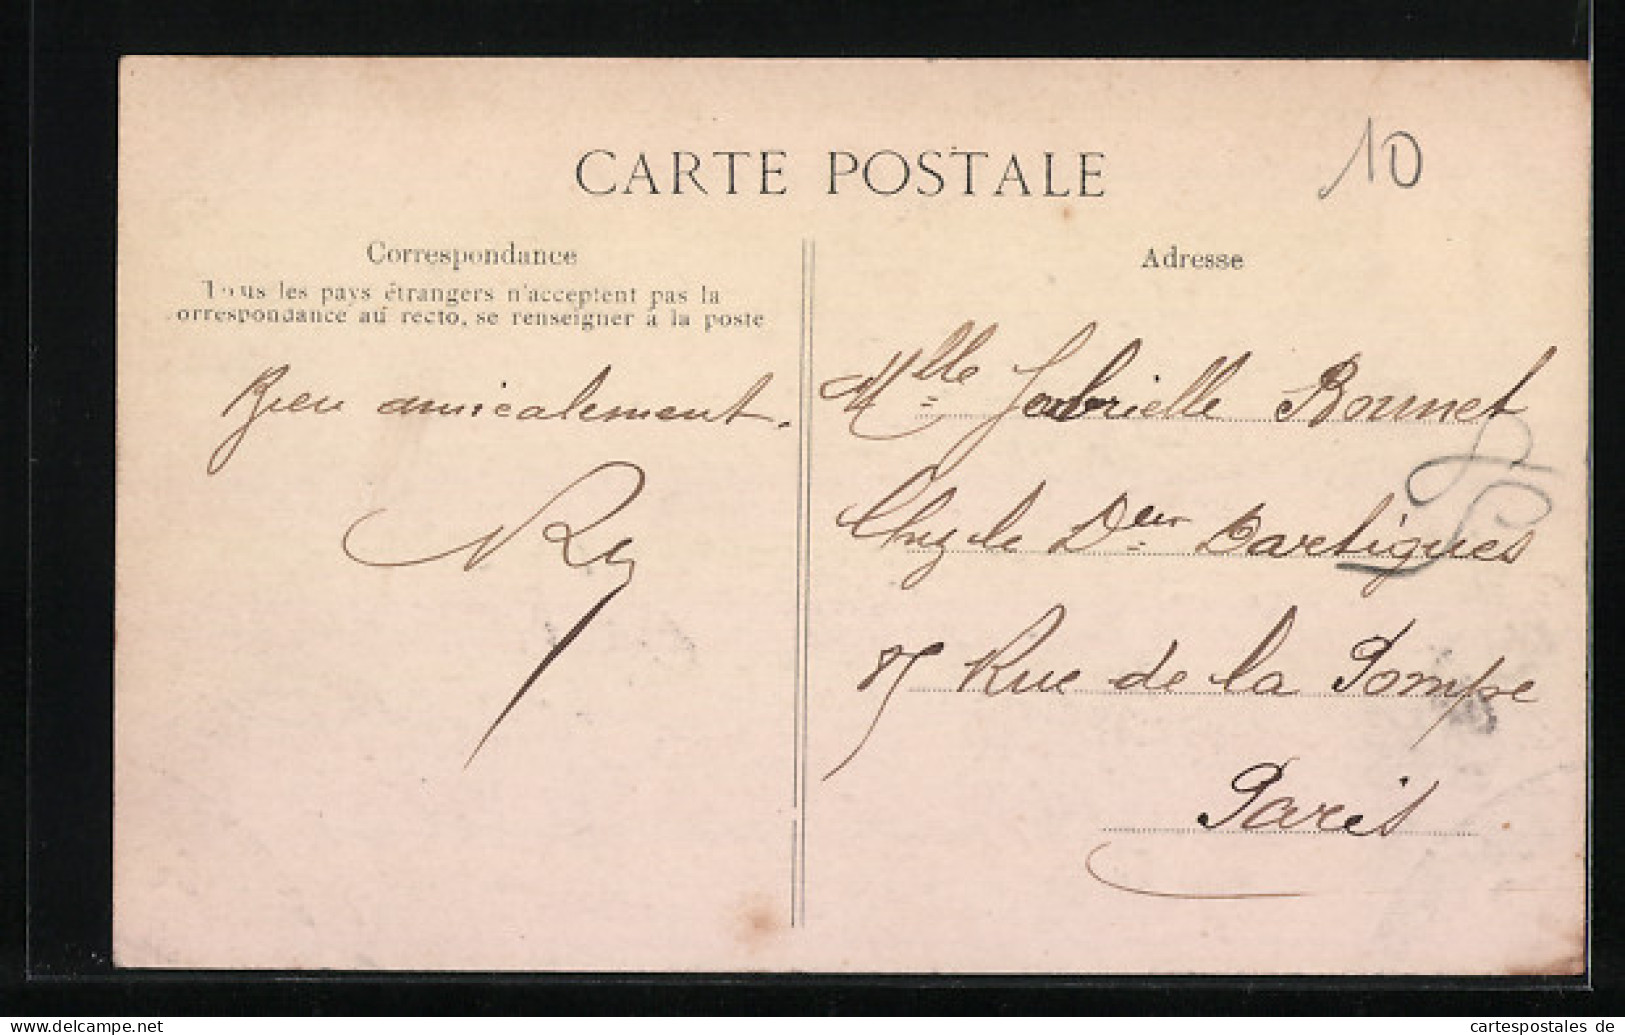 CARTE POSTALE
10
Correspondance
Tous les pays étrangers n'acceptent pas la
orrespondance au recto, se renseigner à la poste
Bien amicalement.
Adresse
Mlle Gabrielle Bonnet
Chez le Dteur Dartigues
85 Rue de la Pompe
Paris
www.delcampe.net
cartespostales de